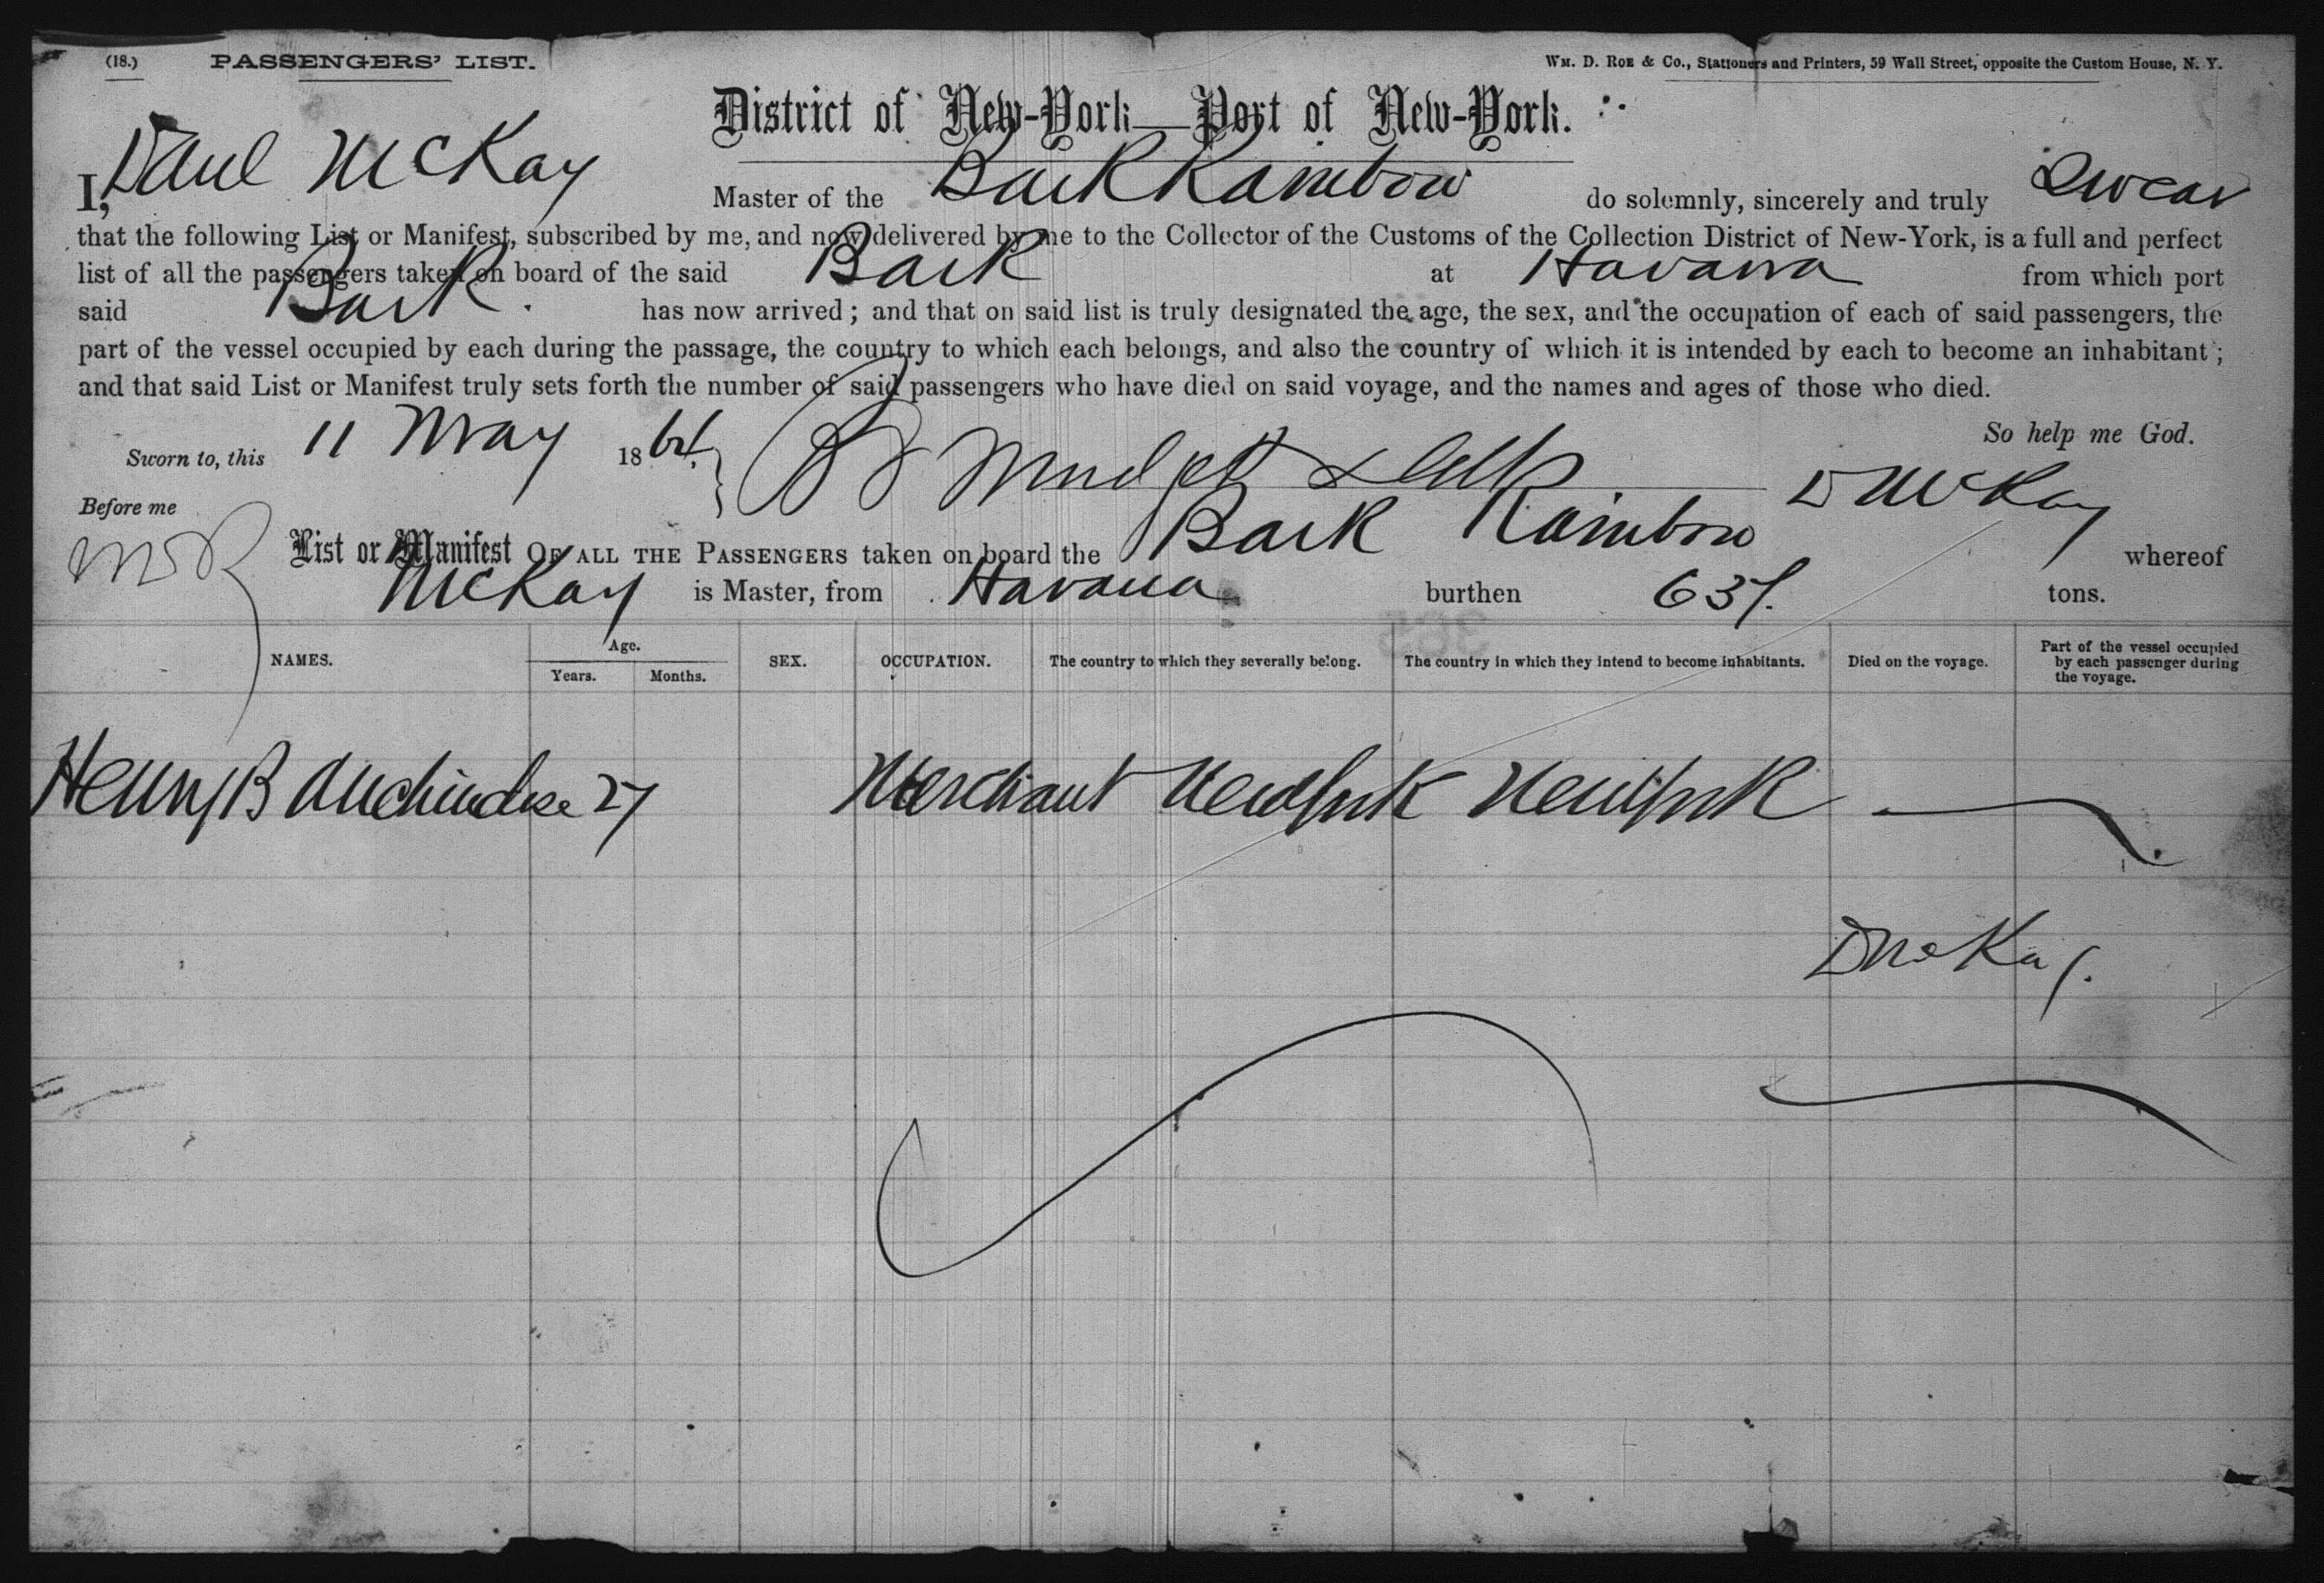 (18.) PASSENGERS' LIST. WM. D. ROE & CO., Stationers and Printers, 59 Wall Street, opposite the Custom House, N. Y.
District of New-York—Port of New-York.
I, McKay Master of the Bark Rainbow do solemnly, sincerely and truly Swear
that the following List or Manifest, subscribed by me, and now delivered by me to the Collector of the Customs of the Collection District of New-York, is a full and perfect
list of all the passengers taken on board of the said Bark at Havana from which port
said Bark has now arrived; and that on said list is truly designated the age, the sex, and the occupation of each of said passengers, the
part of the vessel occupied by each during the passage, the country to which each belongs, and also the country of which it is intended by each to become an inhabitant;
and that said List or Manifest truly sets forth the number of said passengers who have died on said voyage, and the names and ages of those who died.
So help me God.
Sworn to, this 11 May 1864.
D McKay
Before me
List or Manifest OF ALL THE PASSENGERS taken on board the Bark Rainbow whereof
McKay is Master, from Havana burthen 637. tons.
NAMES. Age. Years. Months. SEX. OCCUPATION. The country to which they severally belong. The country in which they intend to become inhabitants. Died on the voyage. Part of the vessel occupied by each passenger during the voyage.
Henry B 27 Merchant New York New York
D McKay.